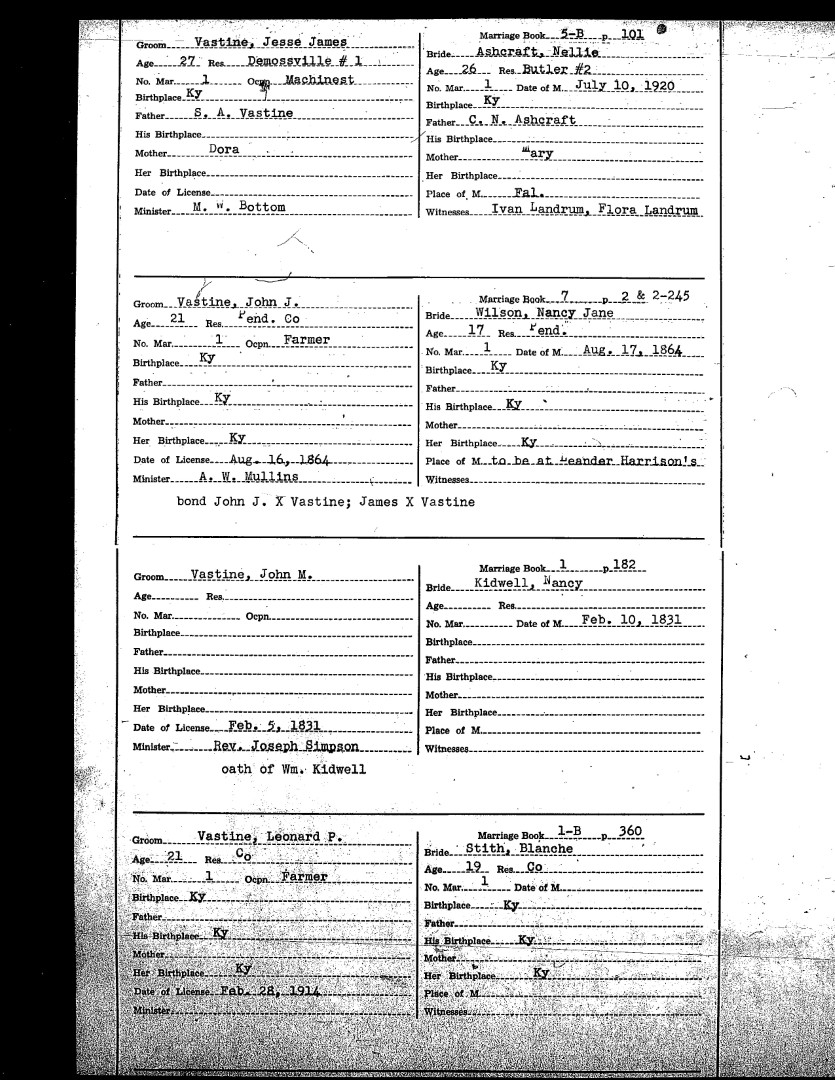 Groom Vastine, Jesse James
Age 27 Res Demossville # 1
No. Mar. 1 Ocpn. Machinest
Birthplace Ky
Father S. A. Vastine
His Birthplace
Mother Dora
Her Birthplace
Date of License
Minister M. W. Bottom
Marriage Book 5-B p 101
Bride Ashcraft, Nellie
Age 26 Res Butler #2
No. Mar. 1 Date of M. July 10, 1920
Birthplace Ky
Father C. N. Ashcraft
His Birthplace
Mother Mary
Her Birthplace
Place of M. Fal.
Witnesses Ivan Landrum, Flora Landrum
Groom Vastine, John J.
Age 21 Res. Pend. Co
No. Mar. 1 Ocpn. Farmer
Birthplace Ky
Father
His Birthplace Ky
Mother
Her Birthplace Ky
Date of License Aug. 16, 1864
Minister A. W. Mullins
bond John J. X Vastine; James X Vastine
Marriage Book 7 p 2 & 2-245
Bride Wilson, Nancy Jane
Age 17 Res Pend.
No. Mar. 1 Date of M. Aug. 17, 1864
Birthplace Ky
Father
His Birthplace Ky
Mother
Her Birthplace Ky
Place of M. to be at Leander Harrison's
Witnesses
Groom Vastine, John M.
Age Res.
No. Mar. Ocpn.
Birthplace
Father
His Birthplace
Mother
Her Birthplace
Date of License Feb. 5, 1831
Minister Rev. Joseph Simpson
oath of Wm. Kidwell
Marriage Book 1 p. 182
Bride Kidwell, Nancy
Age Res.
No. Mar. Date of M. Feb. 10, 1831
Birthplace
Father
His Birthplace
Mother
Her Birthplace
Place of M.
Witnesses
Groom Vastine, Leonard P.
Age 21 Res. Co
No. Mar. 1 Ocpn. Farmer
Birthplace Ky
Father
His Birthplace Ky
Mother
Her Birthplace Ky
Date of License Feb. 28, 1914
Minister
Marriage Book 1-B p 360
Bride Stith, Blanche
Age 19 Res. Co
No. Mar. 1 Date of M.
Birthplace Ky
Father
His Birthplace Ky
Mother
Her Birthplace Ky
Place of M.
Witnesses